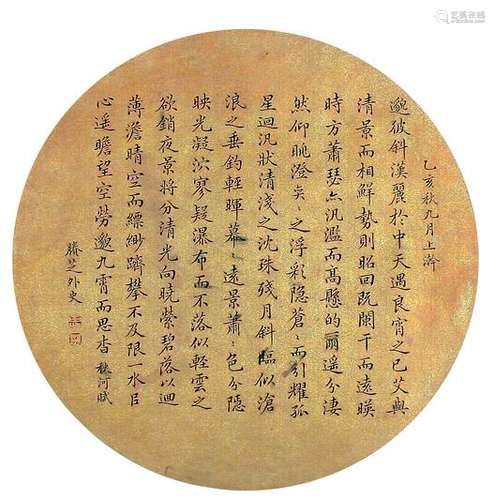 乙亥秋九月上澣
邈彼斜漢麗於中天遇良宵之已艾與
清景而相鮮勢則昭回既闌干而遠暎
時方蕭瑟亦汎濫而髙懸的爾遥分淒
然仰眺澄矣〻之浮彩隐蒼〻而引耀孤
星迴汎狀清淺之沈珠殘月斜臨似滄
浪之垂鈎輕暉冪〻遠景蕭〻色分隱
映光凝泬寥疑瀑布而不落似輕雲之
欲銷夜景將分清光向曉縈碧落以迴
薄澹晴空而縹緲躋攀不及限一水㠯
心遥瞻望空勞邈九霄而思杳 秋河賦
之外史
艺狐在线